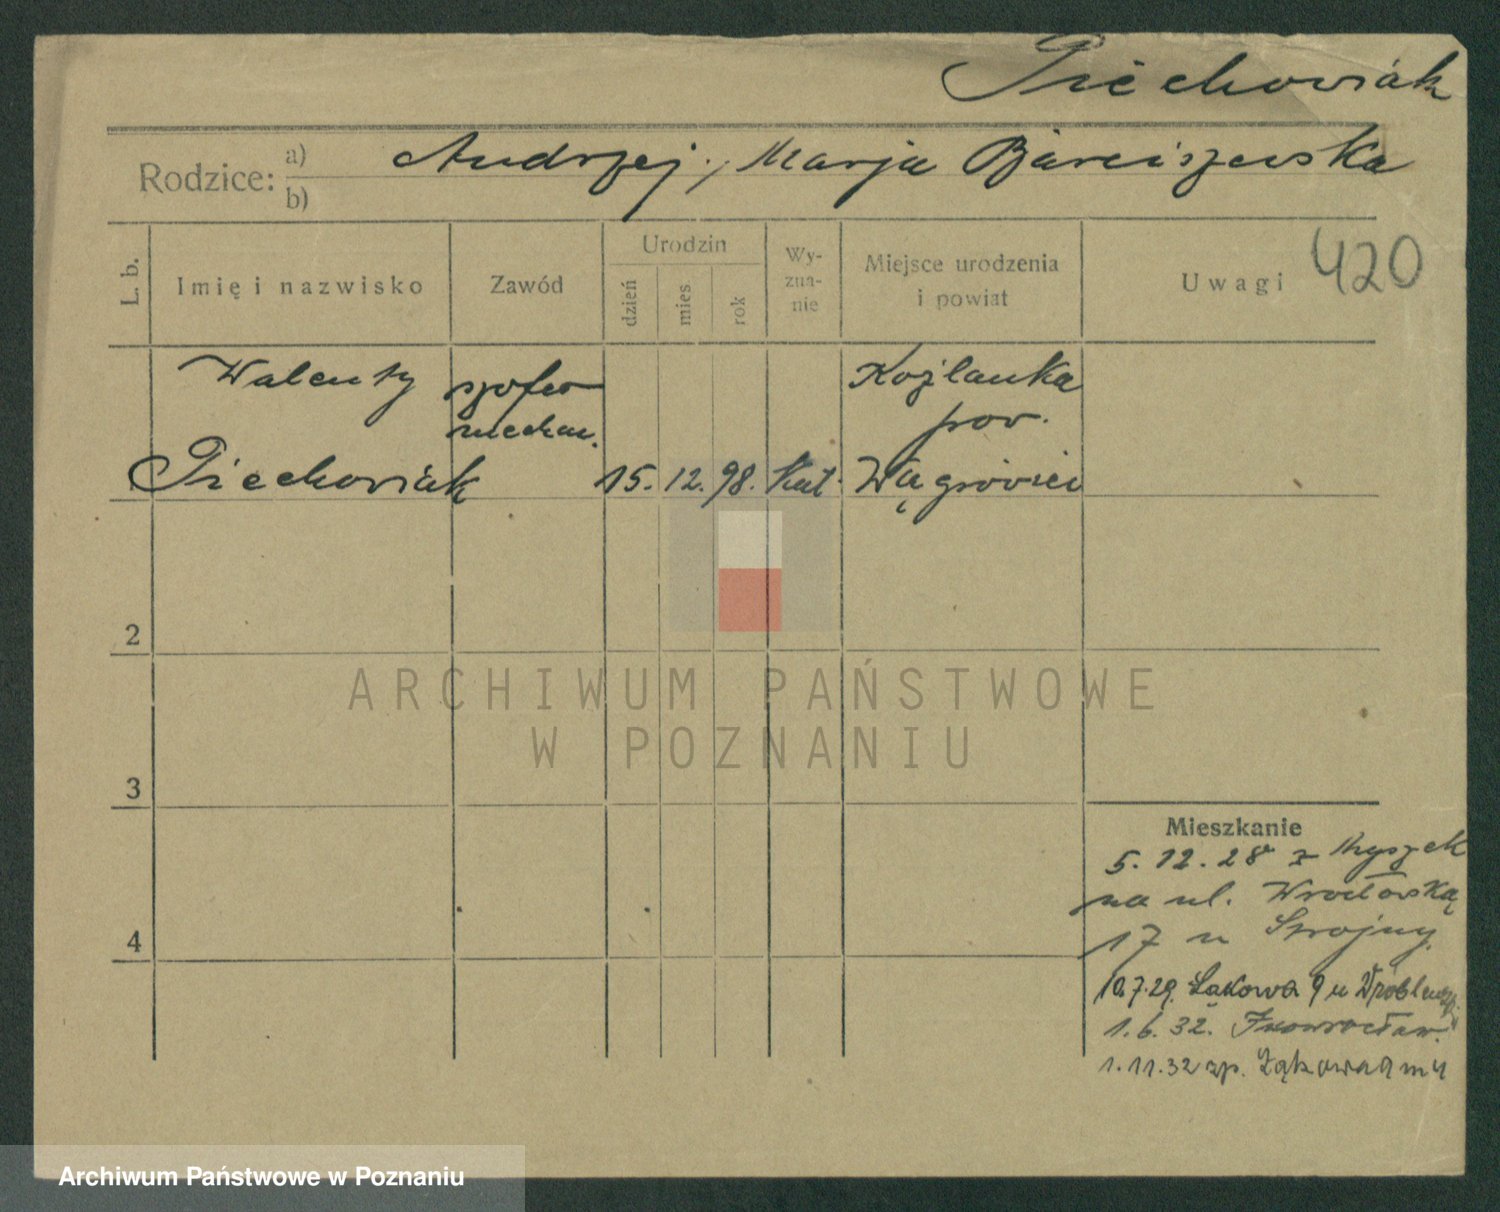 Piechowiak
Rodzice: a) Andrzej, Marja Barciszewska
b)
L. b. Imię i nazwisko Zawód Urodzin dzień mies. rok Wy-zna-nie Miejsce urodzenia i powiat Uwagi 420
Walenty szofer Koźlanka
mechan. pow.
Piechowiak 15. 12. 98. Kat. Wągrowiec
2
3
4
Mieszkanie
5. 12. 28 z
na ul. Wrocławską
17 u Strojny.
10.7.29. Łąkowa 9 u
1.6.32. Inowrocław.
1.11.32 zp. Łąkowa 9 m 4
ARCHIWUM PAŃSTWOWE
W POZNANIU
Archiwum Państwowe w Poznaniu